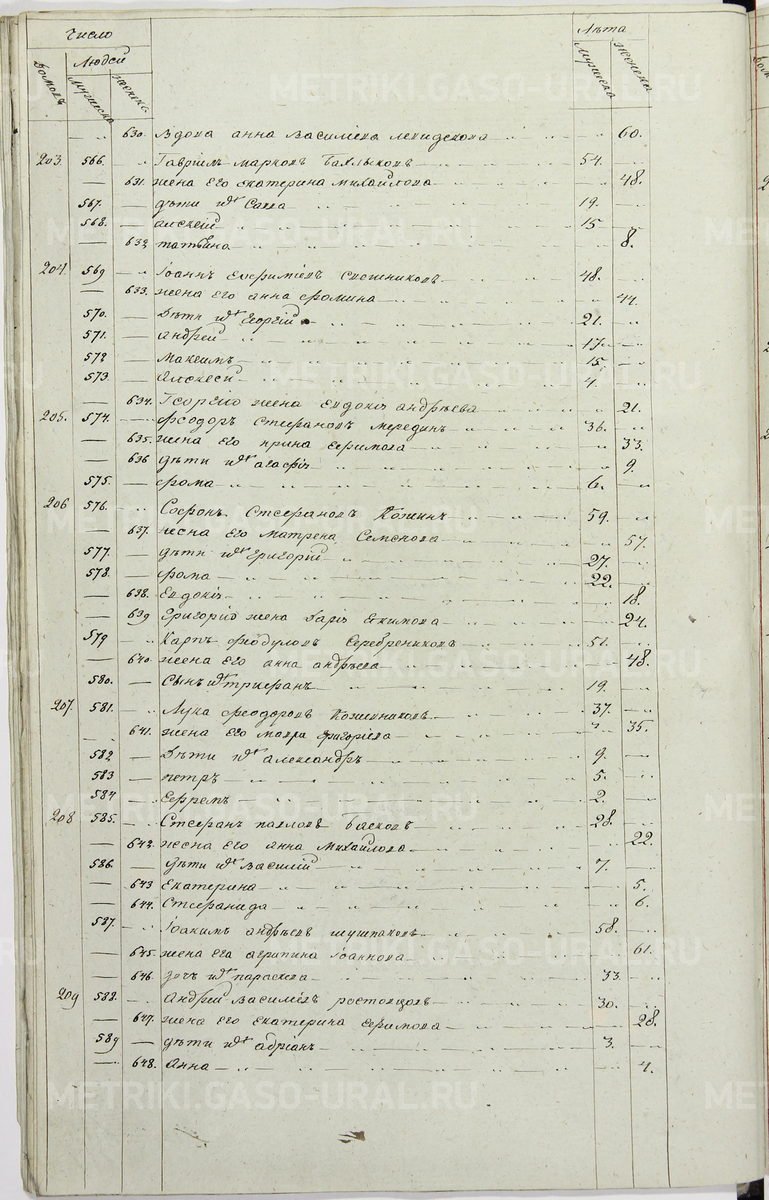 Число
Лѣта
Людей
Домовъ
Мужеска
Женска
Мужеска
Женска
630. Вдова анна васильева 60.
203. 566. Гаврiилъ марковъ 54.
631. жена его екатерина михайлова 48.
567. дѣти ихъ савва 19.
568. алексѣй 15
632 татьяна 8.
204. 569 Iоаннъ евфимiевъ 48.
633. жена его анна фомина 44.
570. Дѣти ихъ георгiй 21.
571. андрей 17.
572 максимъ 15
573. алексей 4.
634. Георгiю жена евдокiя андрѣева 21.
205. 574. феодоръ стефановъ мерединъ 36.
635. жена его ирина ефимова 33.
636 дѣти ихъ агафiя 9.
575. фома 6.
206 576. Софронъ стефановъ кожинъ 59.
637. жена его матрена семенова 57.
577. дѣти ихъ григорiй 27.
578. фома 22.
638. Евдокiя 18.
639 григорiю жена дарiя екимова 24.
579 Карпъ федуловъ серебрениковъ 51.
640. жена его анна андрѣева 48.
580. Сынъ ихъ трифанъ 19.
207. 581. Лука феодоровъ кожевниковъ 37.
641. жена его мавра григорiева 35.
582 Дѣти ихъ александръ 9.
583 петръ 5.
584 Ефремъ 2.
208 585. Стефанъ павловъ басковъ 28.
642. жена его анна михайлова 22.
586. дѣти ихъ василiй 7.
643 екатерина 5.
644. стефанида 6.
587. Iоакимъ андрѣевъ шушпановъ 58.
645. жена его агрипина iоаннова 61.
646. дочь ихъ параскева 33.
209 588. андрей василiевъ ростовцовъ 30.
647. жена его екатерина ефимова 28.
589 дѣти ихъ адрiанъ 3.
648. анна 4.
METRIKI.GASO-URAL.RU